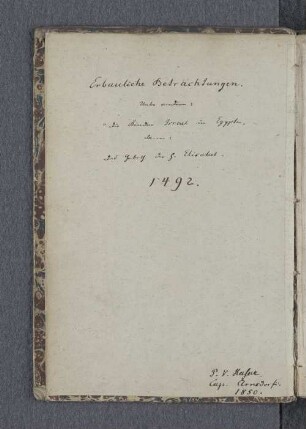 Erbauliche Betrachtungen.
Unter anderm:
"die Kinder Israel in Egypten,
dann:
Das Gebeth der H. Elisabet.
1492.
P. V. Hasak
Cap. Arnsdorf.
1850.